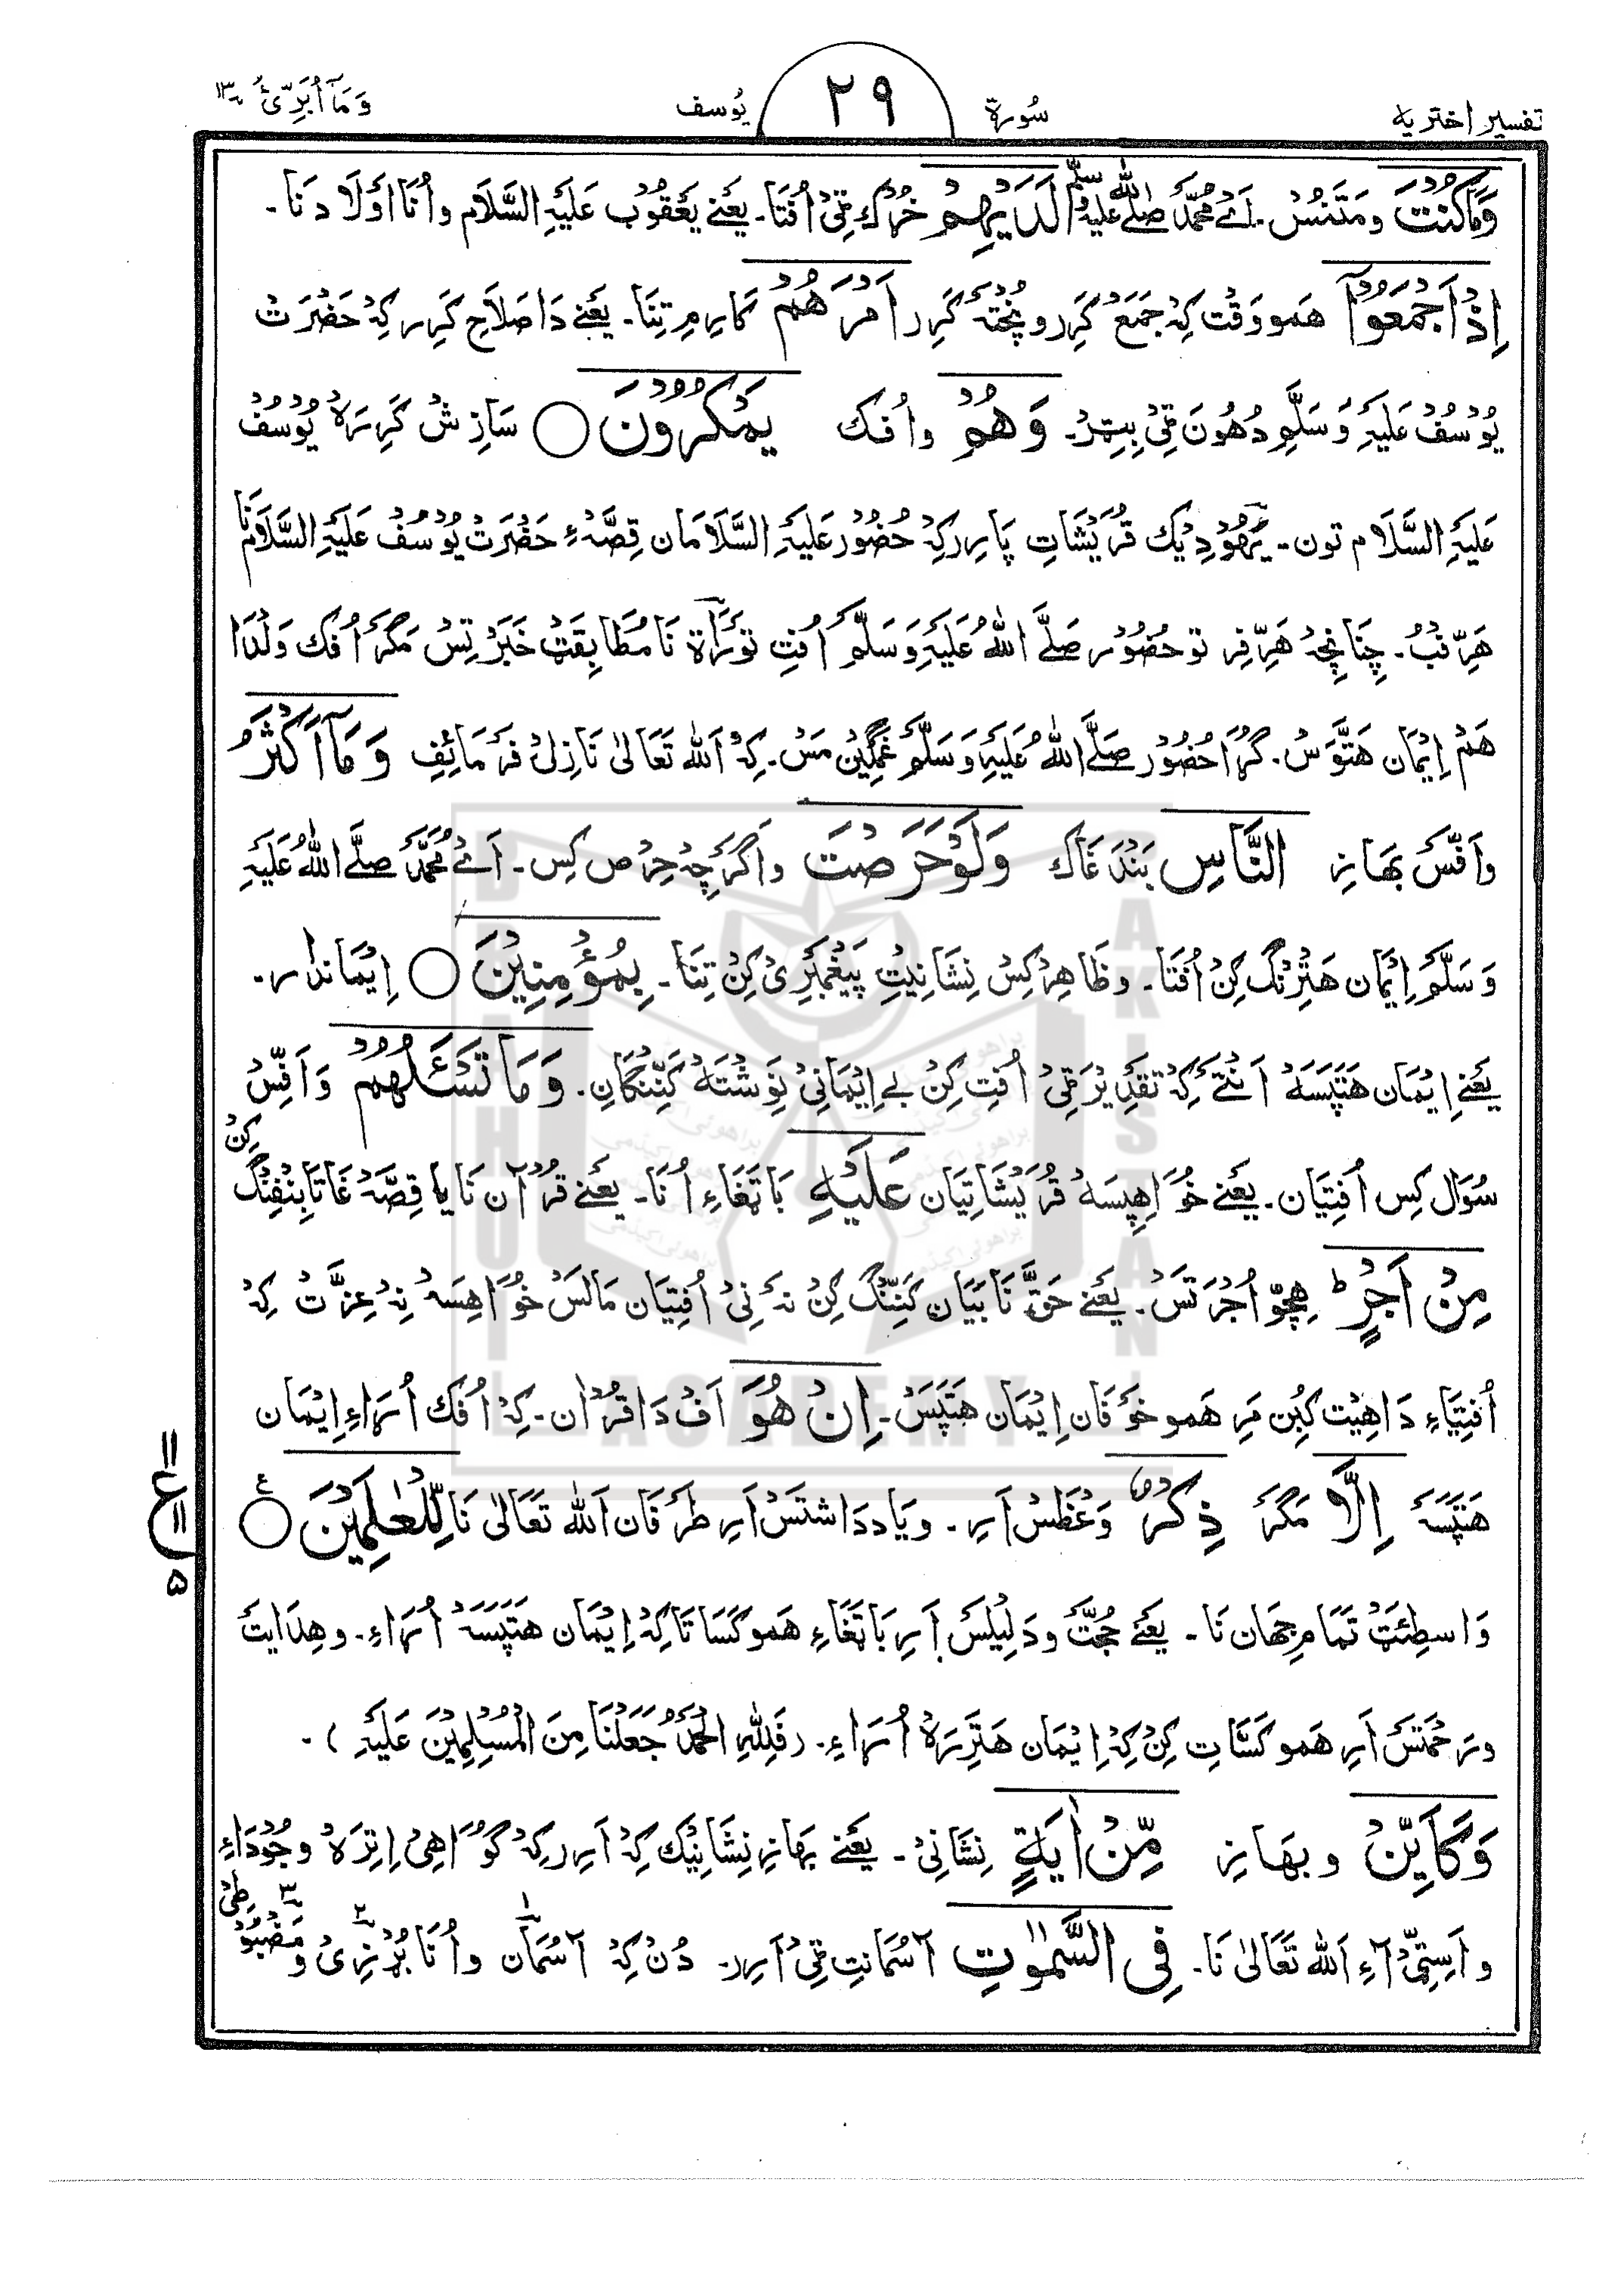 تفسیر اختریه سُورة ۲۹ یُوسف وَمَآ اُبَرِّئُ ۱۳
وَمَاكُنْتَ ومَتَنُسْ۔ اَےْ مُحَمَّدْ صَلَّے اللّٰهُ عَلَیْهِ وسلم لَدَيْهِمْ خُرُك ٹِیْ اُفْتَا۔ یَعْنے یَعْقُوْب عَلَیْهِ السَّلَام و اُنَا اَوْلَاد نَا۔
اِذْ اَجْمَعُوْٓا هَمو وَقْت كِهْ جَمَعْ كَرِر و پُخْتَهْ كَرِر اَمْرَهُمْ كَارِمِ تِنَا۔ یَعْنے دَا صَلَاحِ كَرِر كِهْ حَضْرَتْ
یُوْسُفْ عَلَیْهِ وَسَلَّم دُهُون ٹِیْ بِٹِرْ۔ وَهُمْ و اُفك يَمْكُرُوْنَ ○ سَازِشْ كَرِرَهْ یُوْسُفْ
عَلَیْهِ السَّلَام تون۔ یَهُوْدِیْك قُرَیْشَاتِ پَارِر كِهْ حُضُوْر عَلَیْهِ السَّلَامَان قِصَّهٔءِ حَضْرَتْ یُوْسُفْ عَلَیْهِ السَّلَام نَا
هَرِّفْبُ۔ چِنَانِچِهْ هَرِّفِر تو حُضُوْر صَلَّے اللّٰهُ عَلَیْهِ وَسَلَّمَ اُفْتِ تَوْرَاة نَا مُطَابِقَتْ خَبَرْ تِسْ مَگَرْ اُفْك وَلْدَا
هَمْ اِیْمَان هَتَّوَسْ۔ گُڑَا حُضُوْر صَلَّے اللّٰهُ عَلَیْهِ وَسَلَّمَ غَمْگِیْن مَسْ۔ كِهْ اَللّٰه تَعَالٰی نَازِلْ فَرْمَائِفِ وَمَآ اَكْثَرُ
و اَفَّسْ بَهَاز النَّاسِ بَنْدَغَاك وَلَوْ حَرَصْتَ و اَگَرْچِهْ حِرْص كِس۔ اَےْ مُحَمَّدْ صَلَّے اللّٰهُ عَلَیْهِ
وَسَلَّمَ اِیْمَان هَتِرِنْگ كِنْ اُفْتَا۔ و ظَاهِرْ كِسْ نِشَانِیْتِ پَیْغَمْبَرِیْ كِنْ تِنَا۔ بِمُؤْمِنِيْنَ ○ اِیْمَاندَار۔
یَعْنے اِیْمَان هَتَپَسَهْ اَنْتَےْ كِهْ تَقْدِیْر ٹِیْ اُفْتِ كِنْ بے اِیْمَانِیْ نَوِشْتَهْ كَنِنْگَانِ۔ وَمَا تَسْئَلُهُمْ وَ اَفِّسْ
سُوَال كِس اُفْتِیَان۔ یَعْنے خُوَاهِپَسَهْ قُرَیْشَاتِیَان عَلَيْهِ بَاتَغَاءِ اُنَا۔ یَعْنے قُرْآن نَا یَا قِصَّهْ غَاتَا بِنْفِنْگ كِنْ
مِنْ اَجْرٍ ؕ هِچّو اُجْرَتَسْ۔ یَعْنے حَقَّ نَا بَیَان كَنِنْگ كِنْ نَهْ نِیْ اُفْتِیَان مَالَسْ خُوَاهِسَهْ نِهْ عِزَّتْ كِهْ
اُفْتِیَاءِ دَا هِیْت كُبِن مَرِ هَمو خَوْفَان اِیْمَان هَتَپَسْ۔ اِنْ هُوَ اَفْ دَا قُرْان۔ كِهْ اُفْك اُرَاءِ اِیْمَان
هَتَپَسَهْ اِلَّا مَگَرْ ذِكْرٌ وَعْظَسْ اَرِ۔ و یَادداشْتَسْ اَرِ طَرَفَان اَللّٰه تَعَالٰی نَا لِّلْعٰلَمِيْنَ ○ع
وَاسطِئَتْ تَمَام جِهَان نَا۔ یَعْنے حُجَّتْ و دَلِیْلَسْ اَرِ بَاتَغَاءِ هَمو كَسَاتَا كِهْ اِیْمَان هَتَپَسَهْ اُرَاءِ۔ و هِدَایت
و رَحْمَتَسْ اَرِ هَمو كَسَّاتِ كِنْ كِهْ اِیْمَان هَتِّرَهْ اُرَاءِ۔ (فَلِلّٰهِ الْحَمْدُ جَعَلْنَا مِنَ الْمُسْلِمِيْنَ عَلَیْهِ)۔
وَكَاَيِّنْ و بهَاز مِّنْ اٰيَةٍ نِشَانِیْ۔ یَعْنے بهَاز نِشَانِیْك كِهْ اَرِر كِهْ گُوَاهِیْ اِتِرَهْ وجُوْدَاءِ
و اَسِتِیّ آءِ اَللّٰه تَعَالٰی نَا۔ فِى السَّمٰوٰتِ آسْمَانتِ ٹِیْ اَرِر۔ دُنْ كِهْ آسْمَان و اُنَا بُرْزِیْ و مَضْبُوْطِیْ
ع ۵
BRAHUI ACADEMY PAKISTAN
براهوئی اکیڈمی